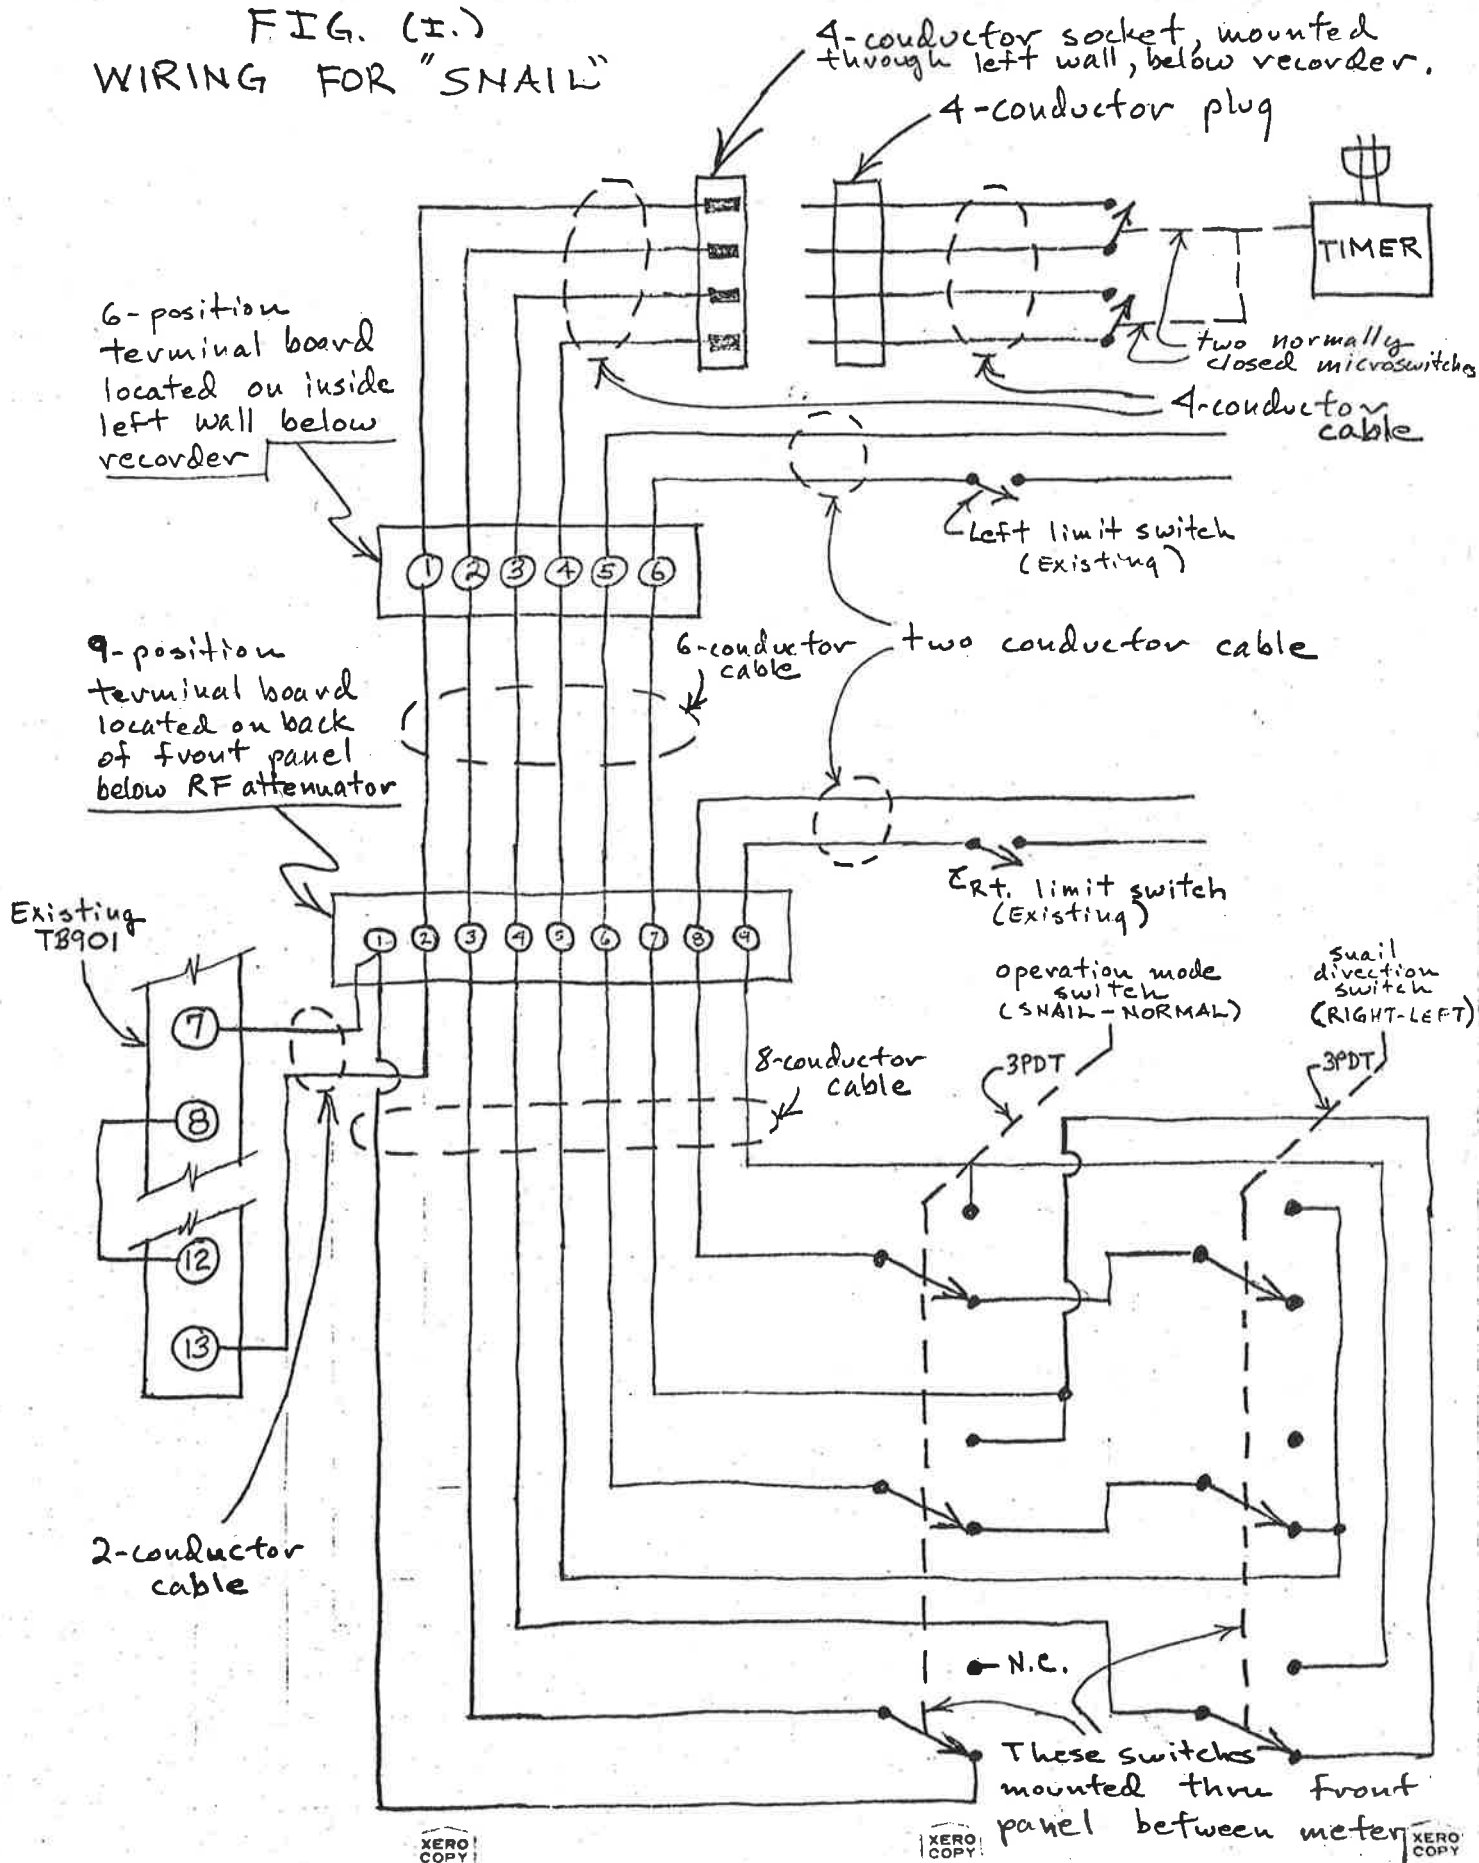 FIG. (I.)
WIRING FOR "SNAIL"
4-conductor socket, mounted
through left wall, below recorder.
4-conductor plug
TIMER
two normally
closed microswitches
4-conductor
cable
6-position
terminal board
located on inside
left wall below
recorder
Left limit switch
(Existing)
1 2 3 4 5 6
9-position
terminal board
located on back
of front panel
below RF attenuator
6-conductor
cable
two conductor cable
Rt. limit switch
(Existing)
Existing
TB901
1 2 3 4 5 6 7 8 9
operation mode
switch
(SNAIL-NORMAL)
snail
direction
switch
(RIGHT-LEFT)
7
8
12
13
8-conductor
cable
3PDT
3PDT
2-conductor
cable
N.C.
These switches
mounted thru front
panel between meter
XERO
COPY
XERO
COPY
XERO
COPY